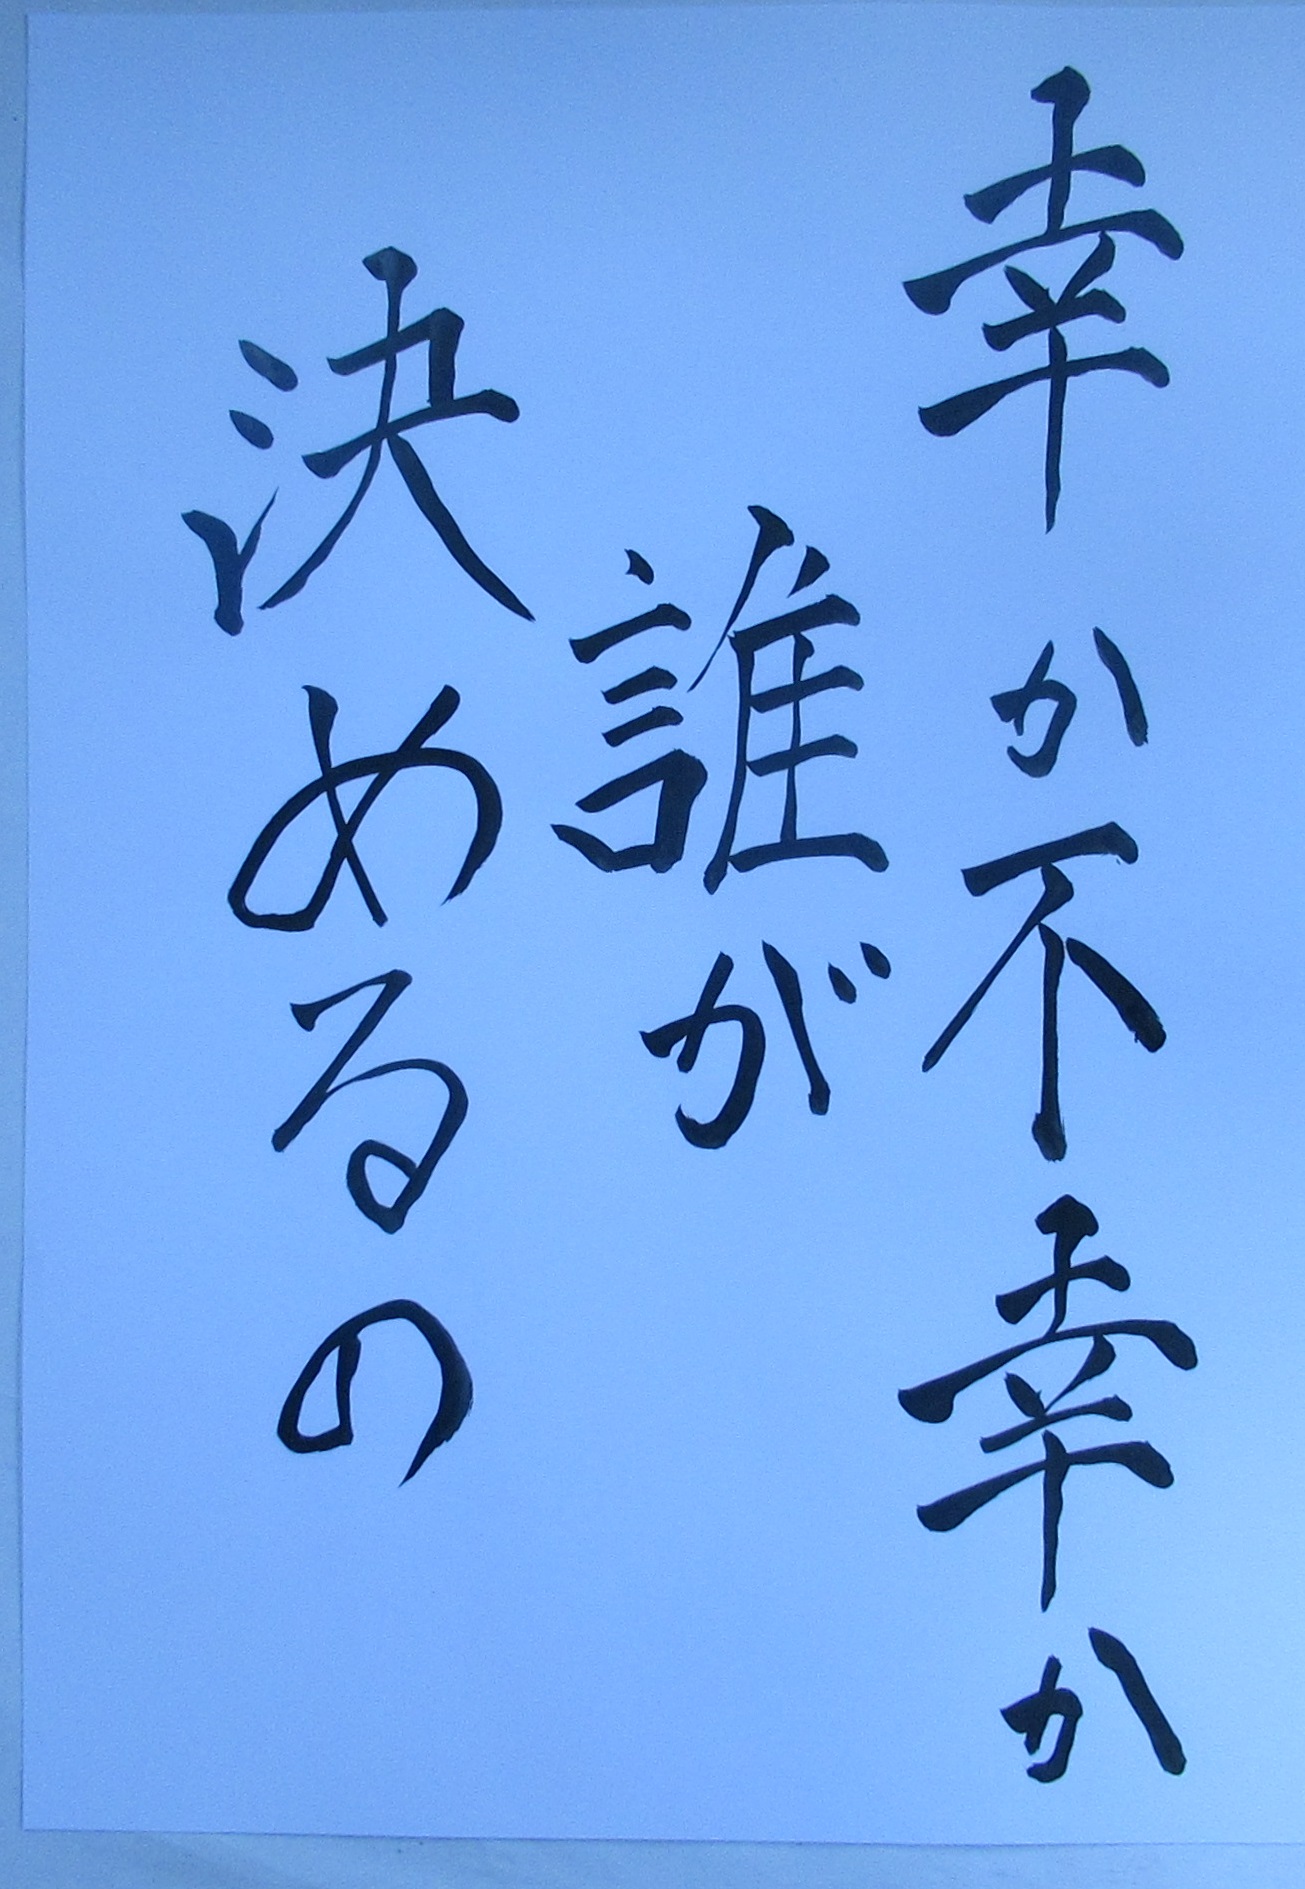 幸か不幸か
誰が
決めるの